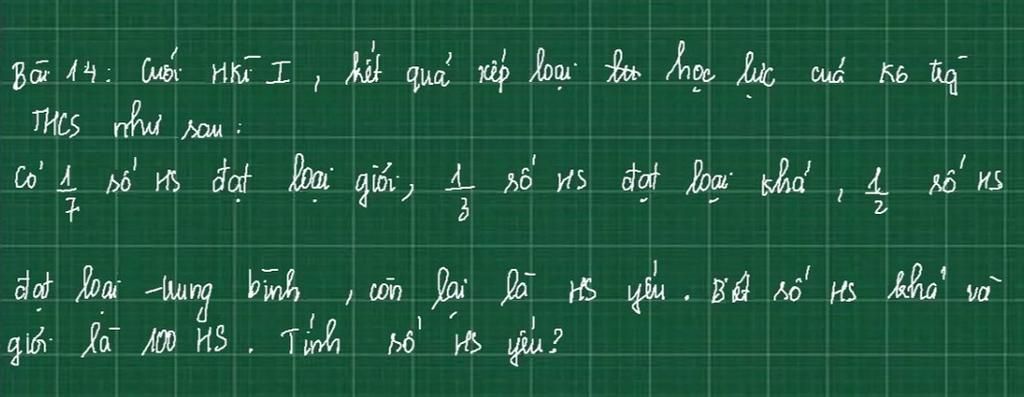 Bài 14: Cuối HKÌ I, kết quả xếp loại học lực cuả K6 trg
THCS như sau:
Có 1/7 số HS đạt loại giỏi, 1/3 số HS đạt loại khá, 1/2 số HS
đạt loại trung bình, còn lại là HS yếu. Biết số HS khá và
giỏi là 100 HS. Tính số HS yếu?